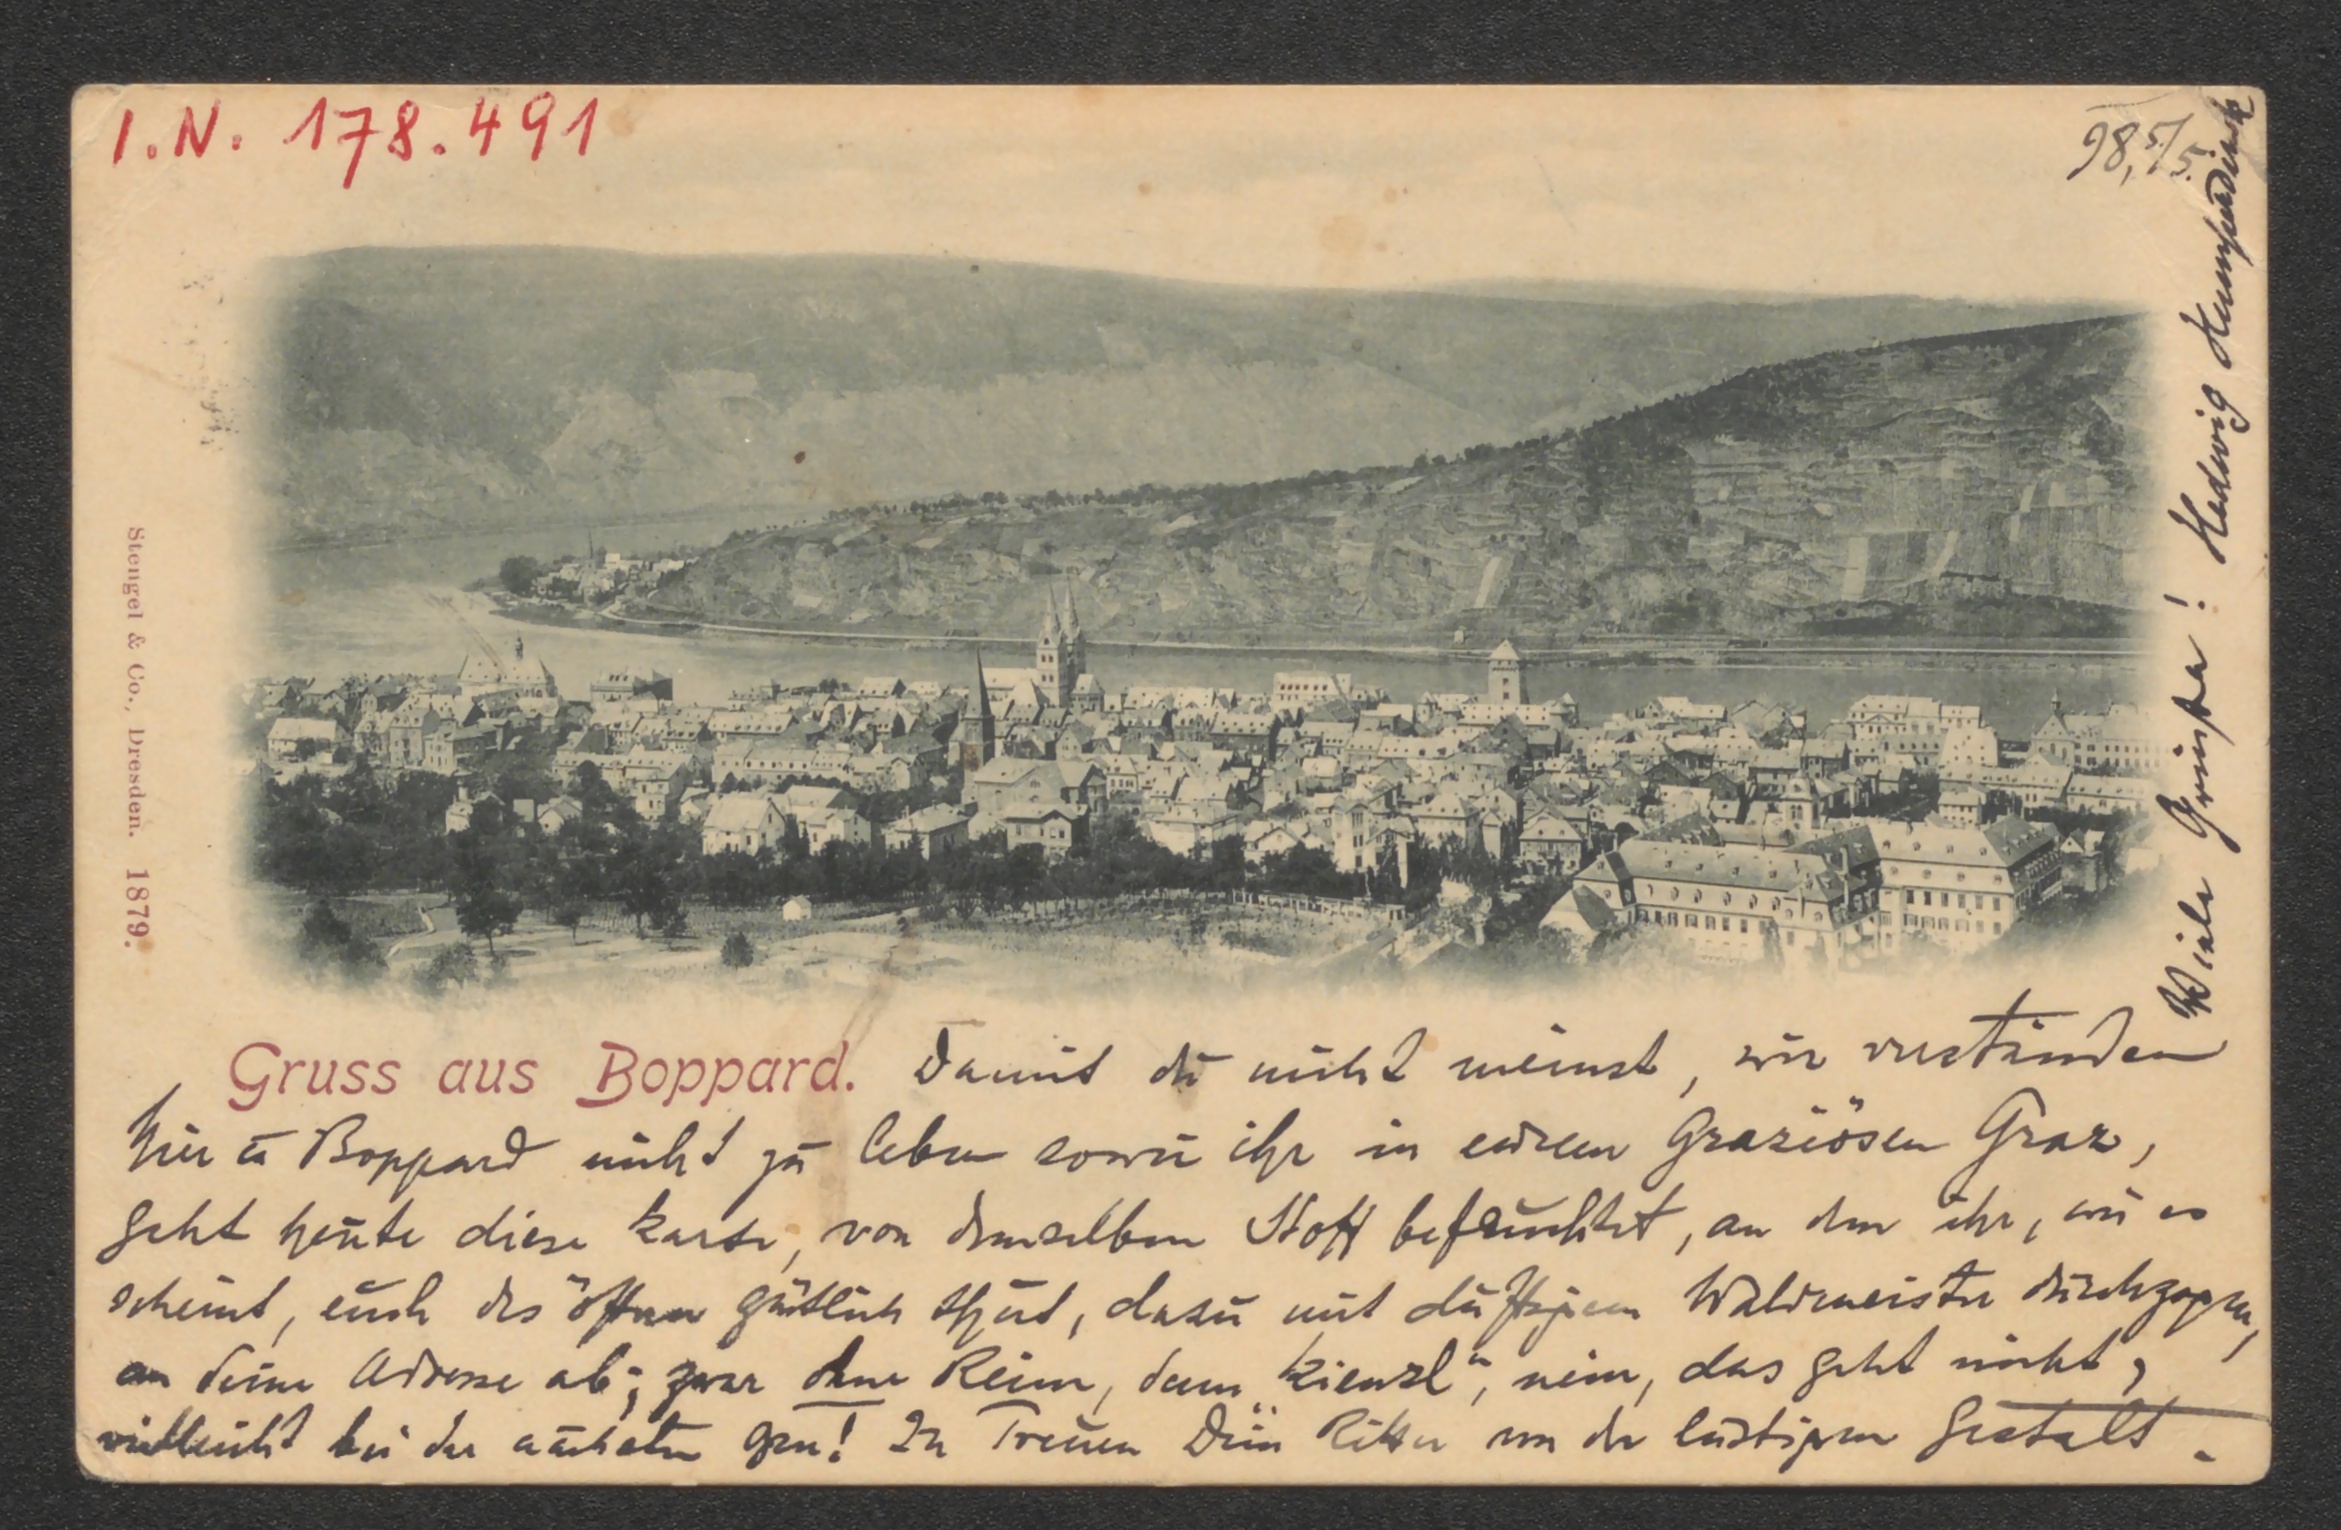 I.N. 178.491
98, 5/5.
Stengel & Co., Dresden. 1879.
Viele Grüsse! Hedwig Humperdinck
Gruss aus Boppard. Damit du nicht meinst, wir verständen
hier in Boppard nicht zu leben sowie ihr in eurem graziösen Graz,
geht heute diese Karte, von demselben Stoff befeuchtet, an dem ihr, wie es
scheint, euch des öftern gütlich thut, dazu mit duftigem Waldmeister durchzogen,
an deine Adresse ab; zwar ohne Reim, denn „Kienzl“, nein, das geht nicht,
vielleicht bei der nächsten gern! In Treuen Dein Ritter von der lustigen Gestalt.